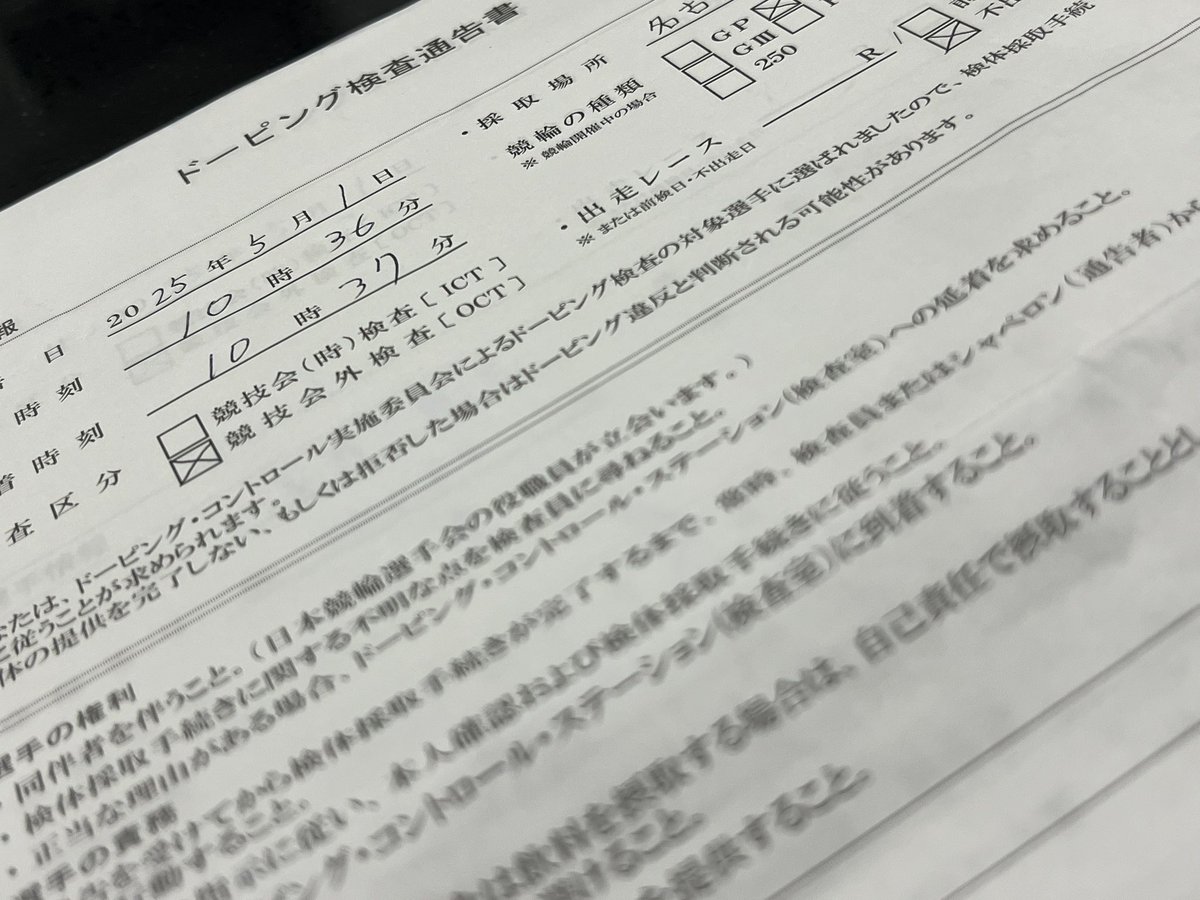 ドーピング検査通告書
・採取場所 名古
競輪の種類
※ 競輪開催中の場合
GP
GⅢ
250
・出走レース R /
※ または前検日・不出走日
日 2025年5月1日
時刻 10時36分
着時刻 10時37分
査区分
競技会(時)検査[ ICT ]
競技会外検査[ OCT ]
なたは、ドーピング・コントロール実施委員会によるドーピング検査の対象選手に選ばれましたので、検体採取手続
に従うことが求められます。
体の提供を完了しない、もしくは拒否した場合はドーピング違反と判断される可能性があります。
選手の権利
・同伴者を伴うこと。(日本競輪選手会の役職員が立会います。)
・検体採取手続きに関する不明な点を検査員に尋ねること。
・正当な理由がある場合、ドーピング・コントロール・ステーション(検査室)への延着を求めること。
選手の責務
告を受けてから検体採取手続きが完了するまで、常時、検査員またはシャペロン(通告者)が
行動すること。
指示に従い、本人確認および検体採取手続きに従うこと。
ング・コントロール・ステーション(検査室)に到着すること。
は飲料を摂取する場合は、自己責任で摂取することとし
けること。
提供すること。